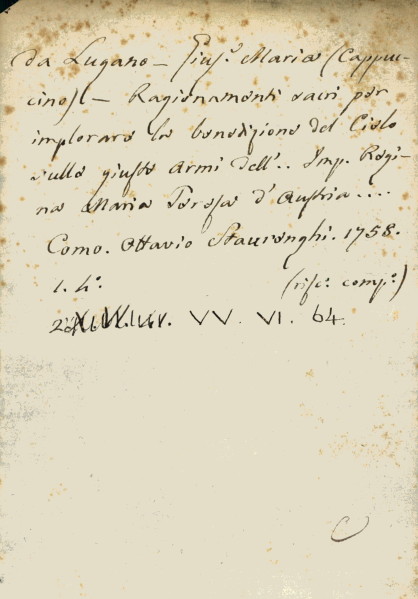 da Lugano — Gius.e Maria (Cappuc-
cino) — Ragionamenti sacri per
implorare la benedizione del Cielo
sulle giuste armi dell'.. Imp. Regi-
na Maria Teresa d'Austria....
Como. Ottavio Staurenghi. 1758.
1. 4°. (risc.° comp.°)
VV. VI. 64.
C